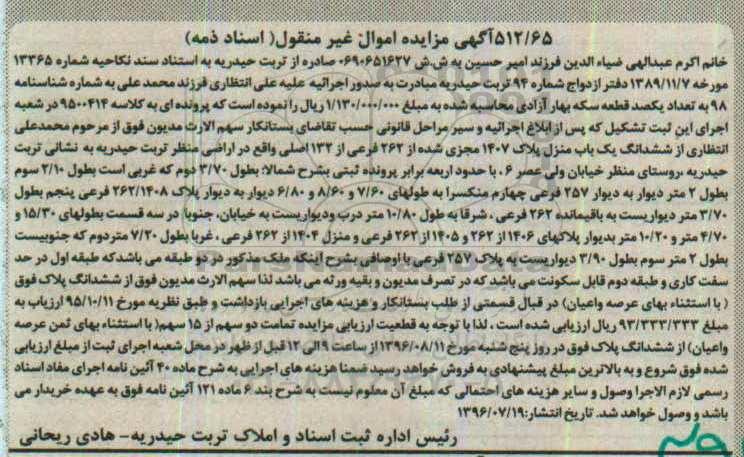 ۵۱۲/۶۵آگهی مزایده اموال غیر منقول( اسناد ذمه)
خانم اکرم عبدالهی ضیاء الدین فرزند امیر حسین به ش.ش ۰۶۹۰۶۵۱۶۲۷ صادره از تربت حیدریه به استناد سند نکاحیه شماره ۱۳۳۶۵
مورخه ۱۳۸۹/۱۱/۷ دفتر ازدواج شماره ۹۴ تربت حیدریه مبادرت به صدور اجرائیه علیه علی انتظاری فرزند محمد علی به شماره شناسنامه
۹۸ به تعداد یکصد قطعه سکه بهار آزادی محاسبه شده به مبلغ ۱/۱۳۰/۰۰۰/۰۰۰ ریال را نموده است که پرونده ای به کلاسه ۹۵۰۰۴۱۴ در شعبه
اجرای این ثبت تشکیل که پس از ابلاغ اجرائیه و سیر مراحل قانونی حسب تقاضای بستانکار سهم الارث مدیون فوق از مرحوم محمدعلی
انتظاری از ششدانگ یک باب منزل پلاک ۱۴۰۷ مجزی شده از ۲۶۲ فرعی از ۱۳۲ اصلی واقع در اراضی منظر تربت حیدریه به نشانی تربت
حیدریه ،روستای منظر خیابان ولی عصر ۶ ، با حدود اربعه برابر پرونده ثبتی بشرح شمالا: بطول ۳/۷۰ دوم که غربی است بطول ۲/۱۰ سوم
بطول ۲ متر دیوار به دیوار ۲۵۷ فرعی چهارم منکسرا به طولهای ۷/۶۰ و ۸/۶۰ و ۶/۸۰ دیوار به دیوار پلاک ۲۶۲/۱۴۰۸ فرعی پنجم بطول
۳/۷۰ متر دیواریست به باقیمانده ۲۶۲ فرعی ، شرقا به طول ۱۰/۸۰ متر درب ودیواریست به خیابان، جنوبا در سه قسمت بطولهای ۱۵/۳۰ و
۴/۷۰ متر و ۱۰/۲۰ متر بدیوار پلاکهای ۱۴۰۶ از ۲۶۲ و ۱۴۰۵ از ۲۶۲ فرعی و منزل ۱۴۰۴ از ۲۶۲ فرعی ، غربا بطول ۷/۲۰ متردوم که جنوبیست
بطول ۲ متر سوم بطول ۳/۹۰ دیواریست به پلاک ۲۵۷ فرعی با اوصافی بشرح اینکه ملک مذکور در دو طبقه می باشدکه طبقه اول در حد
سفت کاری و طبقه دوم قابل سکونت می باشد که در تصرف مدیون و بقیه ورثه می باشد لذا سهم الارث مدیون فوق از ششدانگ پلاک فوق
( با استثناء بهای عرصه واعیان) در قبال قسمتی از طلب بستانکار و هزینه های اجرایی بازداشت و طبق نظریه مورخ ۹۵/۱۰/۱۱ ارزیاب به
مبلغ ۹۳/۳۳۳/۳۳۳ ریال ارزیابی شده است ، لذا با توجه به قطعیت ارزیابی مزایده تمامت دو سهم از ۱۵ سهم( با استثناء بهای ثمن عرصه
واعیان) از ششدانگ پلاک فوق در روز پنج شنبه مورخ ۱۳۹۶/۰۸/۱۱ از ساعت ۹ الی ۱۲ قبل از ظهر در محل شعبه اجرای ثبت از مبلغ ارزیابی
شده فوق شروع و به بالاترین مبلغ پیشنهادی به فروش خواهد رسید ضمنا هزینه های اجرایی به شرح ماده ۴۰ آئین نامه اجرای مفاد اسناد
رسمی لازم الاجرا وصول و سایر هزینه های احتمالی که مبلغ آن معلوم نیست به شرح بند ۶ ماده ۱۲۱ آئین نامه فوق به عهده خریدار می
باشد و وصول خواهد شد. تاریخ انتشار:۱۳۹۶/۰۷/۱۹
رئیس اداره ثبت اسناد و املاک تربت حیدریه- هادی ریحانی